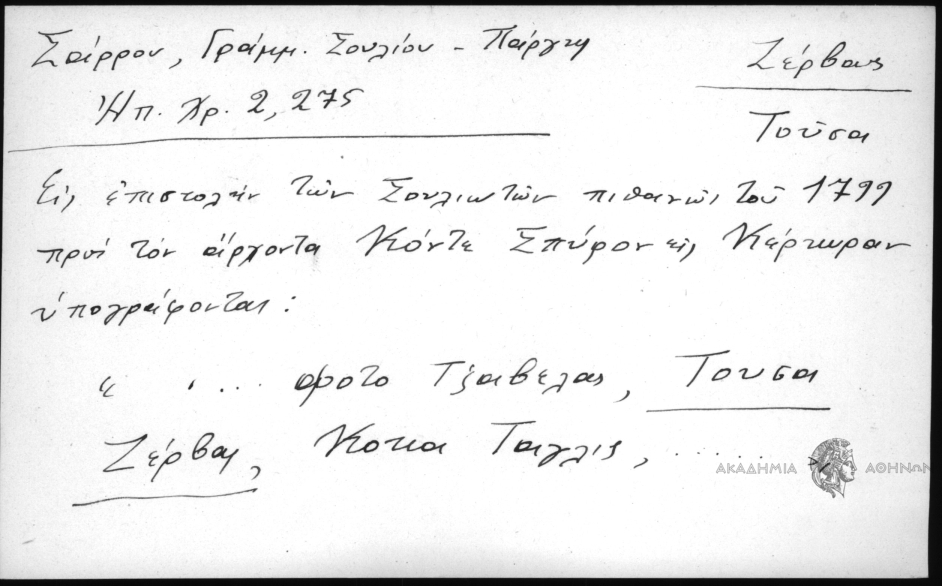 Σάρρου, Γράμμ. Σουλίου - Πάργης
Ἠπ. Χρ. 2, 275
Ζέρβας
Τούσα
Εἰς ἐπιστολήν τῶν Σουλιωτῶν πιθανῶς τοῦ 1799
πρός τόν ἄρχοντα Κόντε Σπύρον εἰς Κέρκυραν
ὑπογράφονται:
« . ... φοτο Τζαβελας, Τουσα
Ζέρβας, Κοτσα Ταγλις, ......
ΑΚΑΔΗΜΙΑ ΑΘΗΝΩΝ